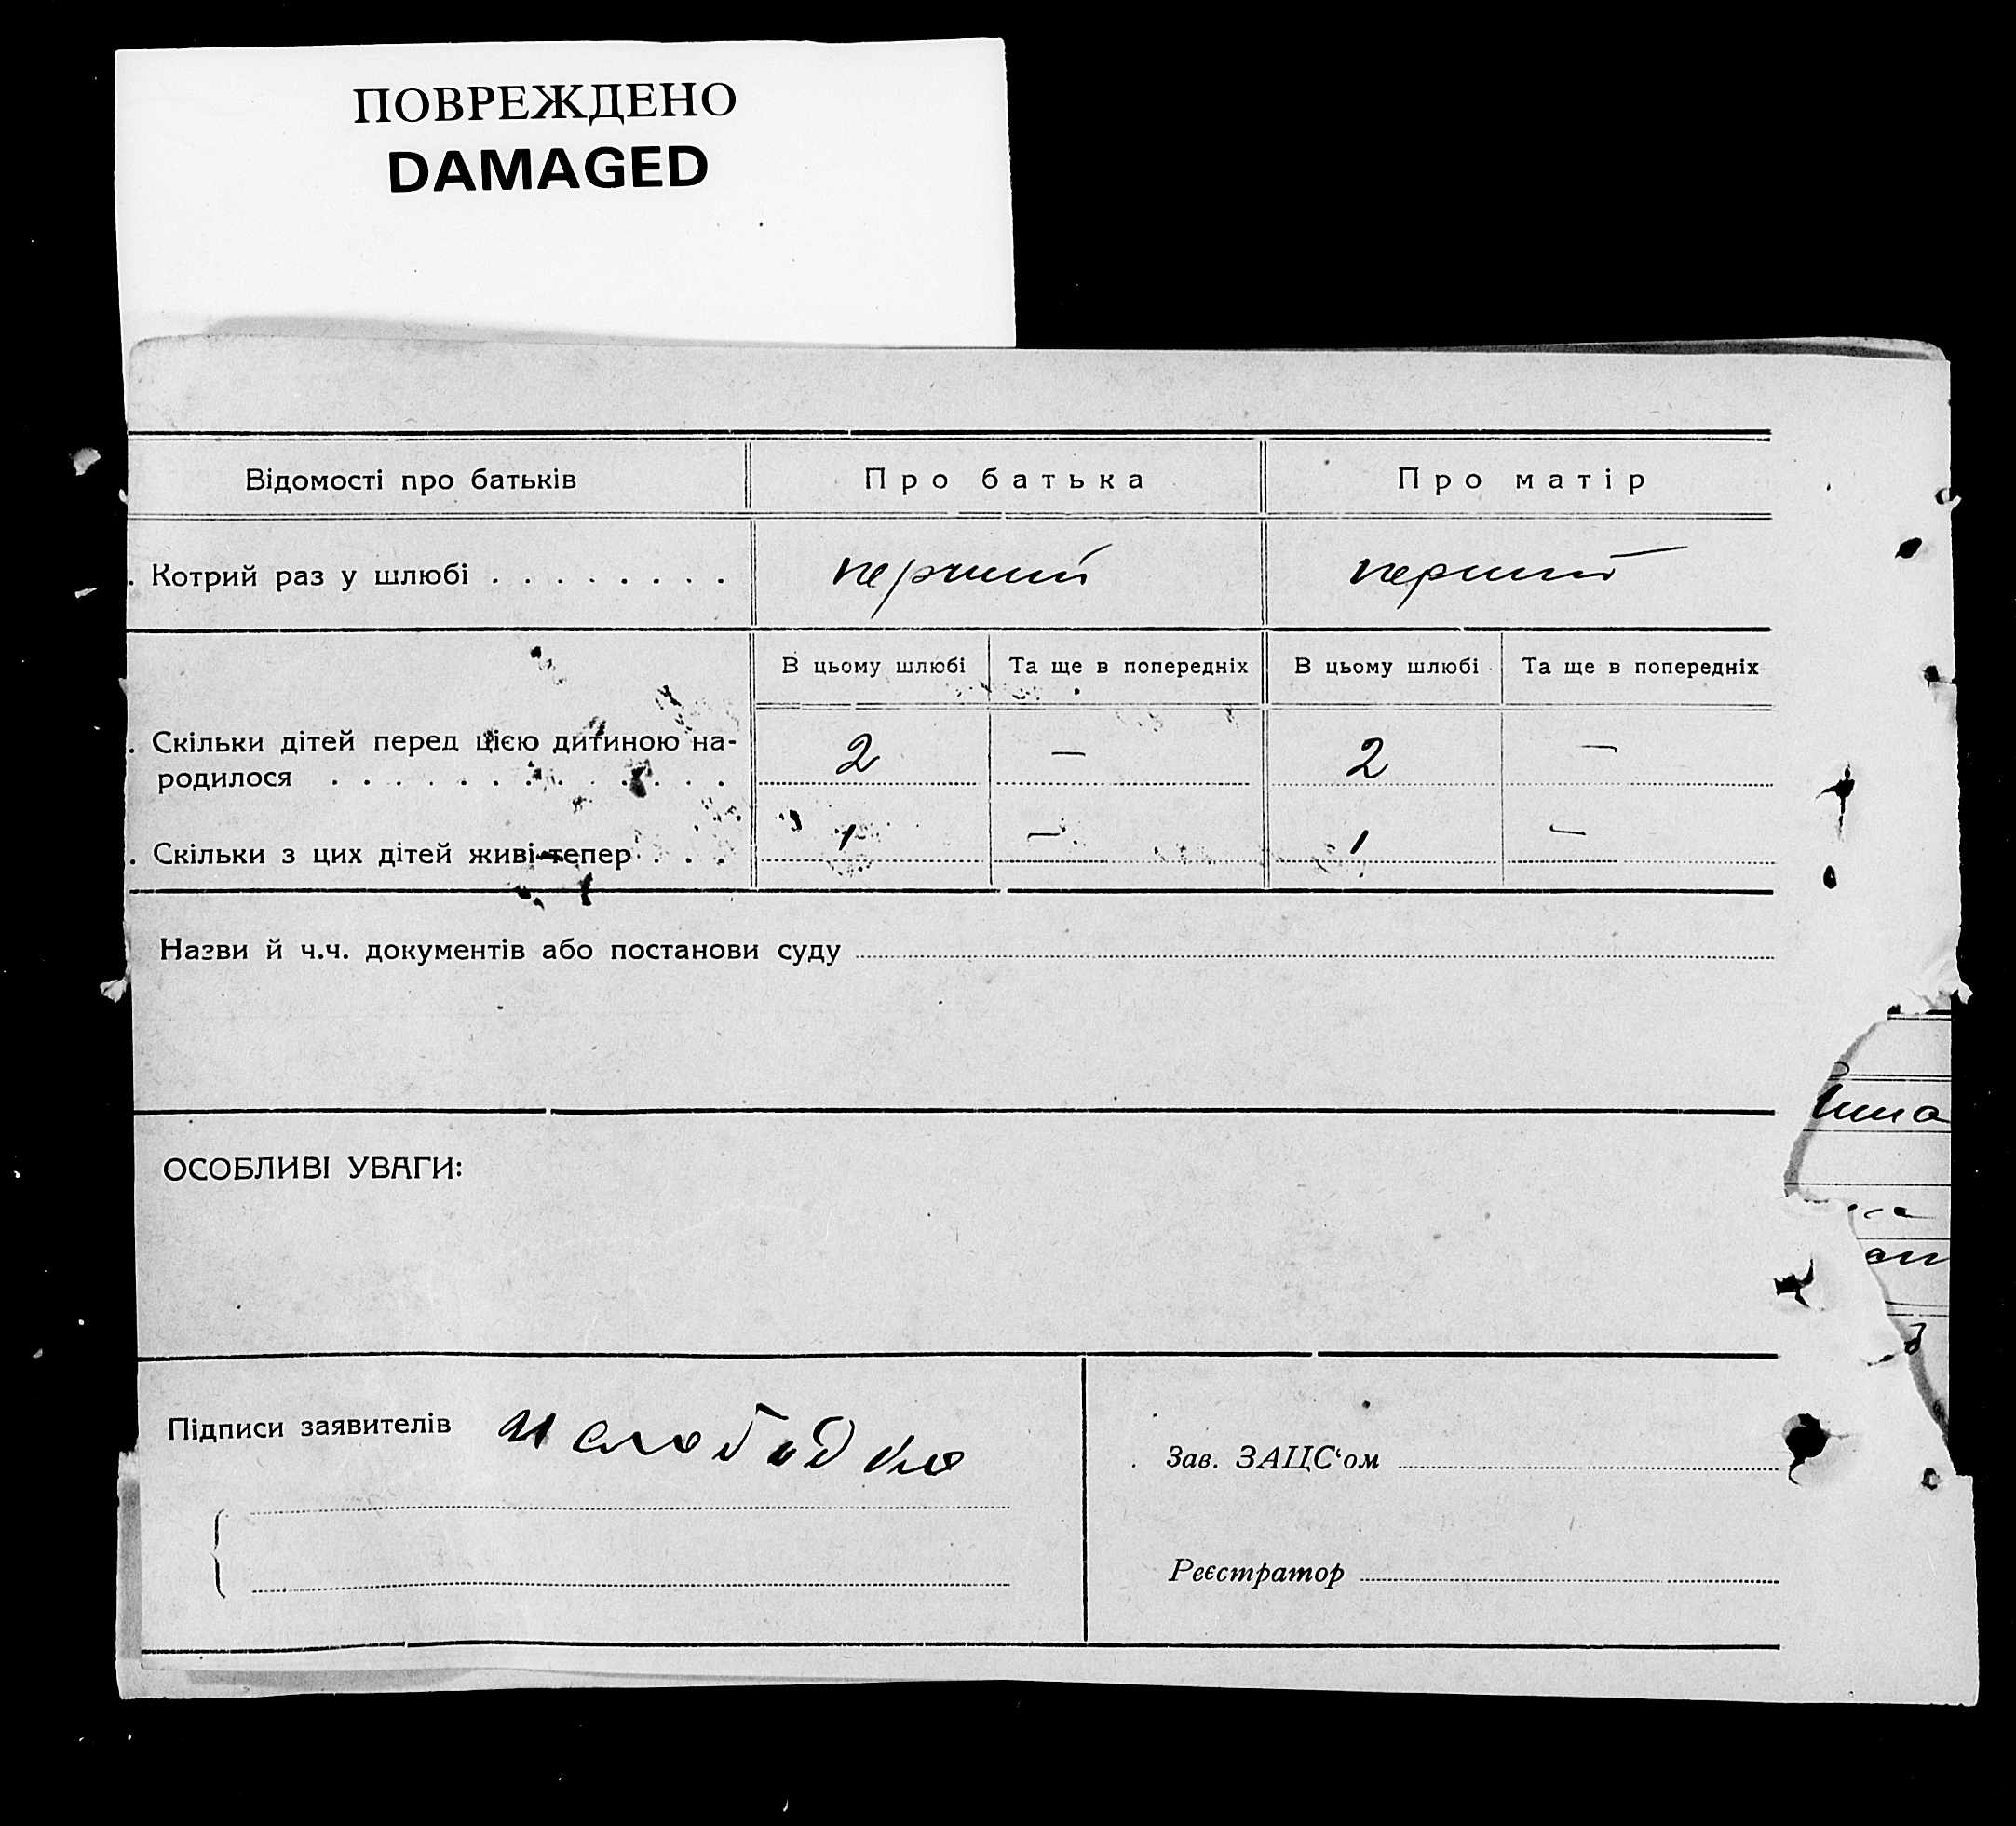 ПОВРЕЖДЕНО
DAMAGED
Відомості про батьків
Про батька
Про матір
. Котрий раз у шлюбі . . . . . . . .
перший
перший
В цьому шлюбі
Та ще в попередніх
В цьому шлюбі
Та ще в попередніх
. Скільки дітей перед цією дитиною на-
родилося . . . . . . . . . . . . .
2
—
2
—
. Скільки з цих дітей живі тепер . . .
1
—
1
—
Назви й ч.ч. документів або постанови суду
ОСОБЛИВІ УВАГИ:
Підписи заявителів
Зав. ЗАЦС‘ом
Реєстратор